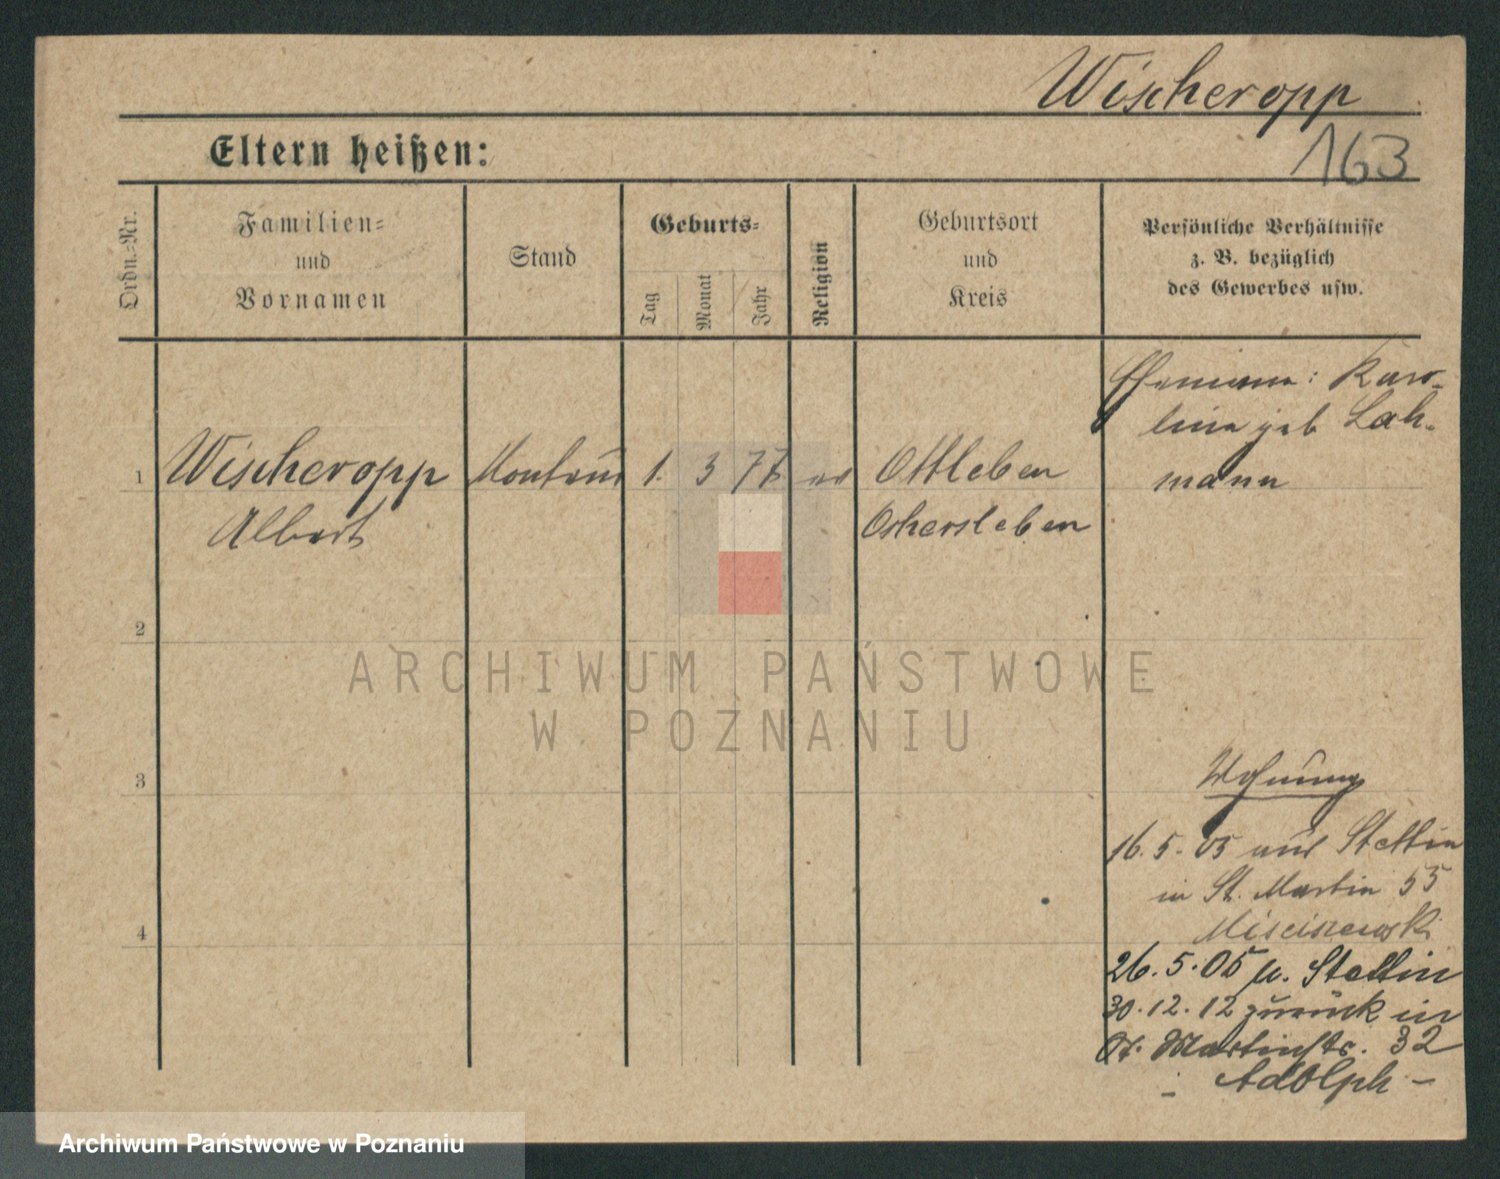 Wischeropp
163
Eltern heißen:
Ordn.-Nr.
Familien-
und
Vornamen
Stand
Geburts-
Tag
Monat
Jahr
Religion
Geburtsort
und
Kreis
Persönliche Verhältnisse
z. B. bezüglich
des Gewerbes usw.
1
Wischeropp
Albert
Monteur
1. 3 77
ev
Ottleben
Oschersleben
: Karo-
lina geb Lah-
mann
2
3
4
Wohnung
16. 5. 05 aus Stettin
in St. Martin 55
26. 5. 05 n. Stettin
30. 12. 12 zurück in
St. Martinstr. 32
- Adolph -
ARCHIWUM PAŃSTWOWE
W POZNANIU
Archiwum Państwowe w Poznaniu